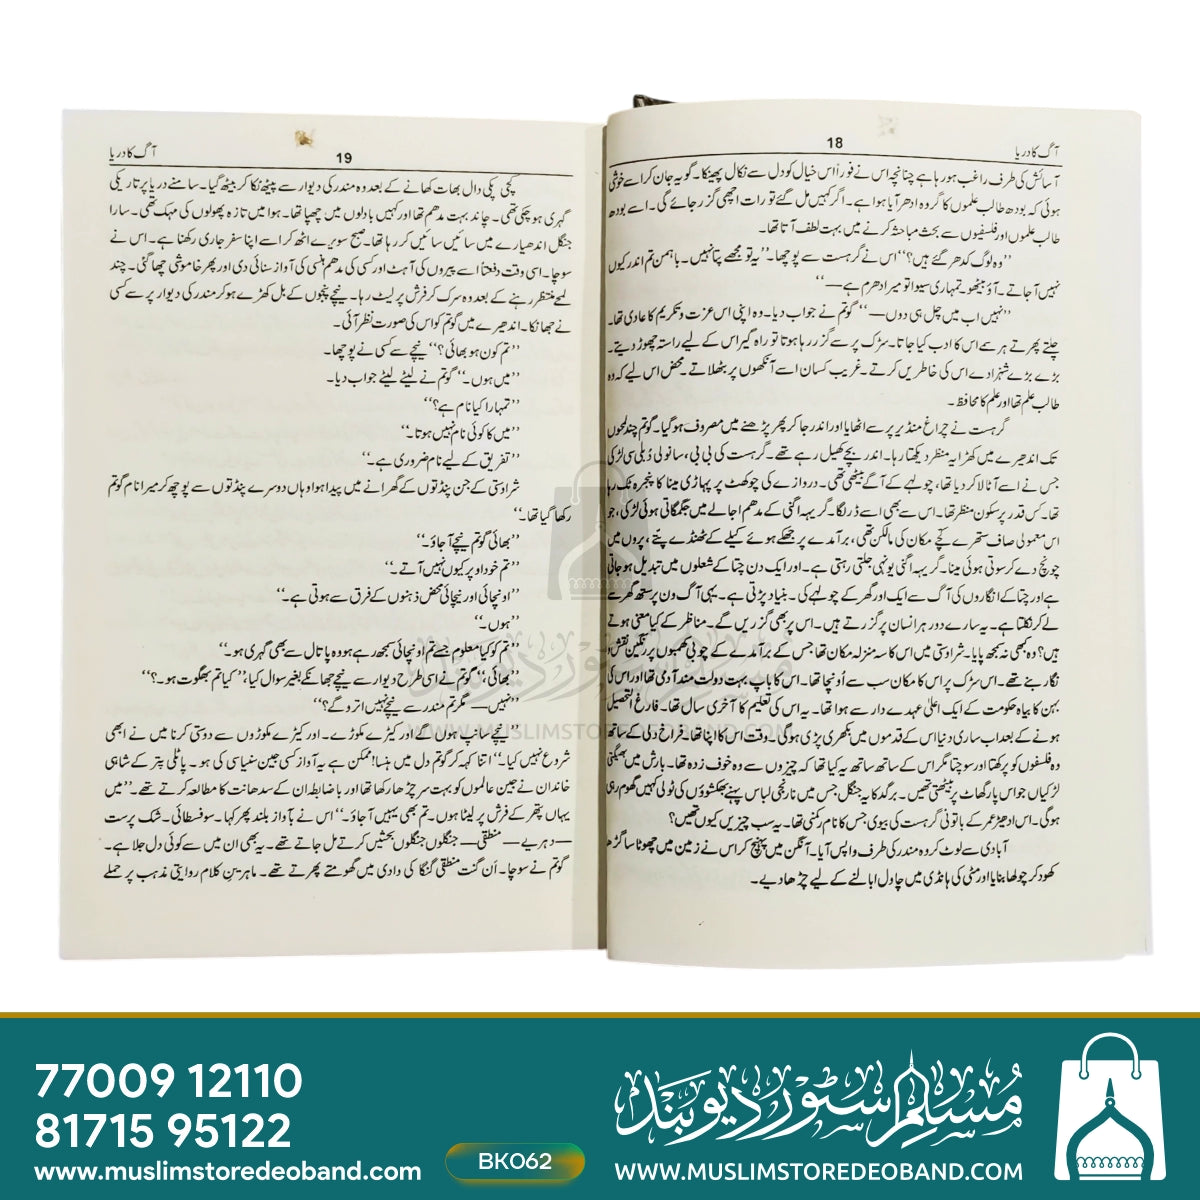 آگ کا دریا
18
آسائش کی طرف راغب ہو رہا ہے چنانچہ اس نے فوراً اس خیال کو دل سے نکال پھینکا۔ گو یہ جان کر اسے خوشی
ہوئی کہ بودھ طالب علموں کا گروہ ادھر آیا ہوا ہے۔ اگر کہیں مل گئے تو رات اچھی گزر جائے گی۔ اسے بودھ
طالب علموں اور فلسفیوں سے بحث مباحثہ کرنے میں بہت لطف آتا تھا۔
”وہ لوگ کدھر گئے ہیں؟“ اس نے گرہست سے پوچھا۔ ”یہ تو مجھے پتا نہیں۔ باہمن تم اندر کیوں
نہیں آجاتے۔ آؤ بیٹھو۔ تمہاری سیوا تو میرا دھرم ہے—“
”نہیں اب میں چل ہی دوں—“ گوتم نے جواب دیا۔ وہ اپنی اس عزت و تکریم کا عادی تھا۔
چلتے پھرتے ہر سے اس کا ادب کیا جاتا۔ سڑک پر سے گزر رہا ہوتا تو راہ گیر اس کے لیے راستہ چھوڑ دیتے۔
بڑے بڑے شہزادے اس کی خاطریں کرتے۔ غریب کسان اسے آنکھوں پر بٹھلاتے۔ محض اس لیے کہ وہ
طالب علم تھا اور علم کا محافظ۔
گرہست نے چراغ منڈیر پر سے اٹھایا اور اندر جا کر پھر پڑھنے میں مصروف ہو گیا۔ گوتم چند لمحوں
تک اندھیرے میں کھڑا یہ منظر دیکھتا رہا۔ اندر بچے کھیل رہے تھے۔ گرہست کی بی بی، سانولی دُبلی سی لڑکی
جس نے اسے آٹا لا کر دیا تھا، چولہے کے آگے بیٹھی تھی۔ دروازے کی چوکھٹ پر پہاڑی مینا کا پنجرہ تک رہا
تھا۔ کس قدر پرسکون منظر تھا۔ اس سے بھی اسے ڈر لگا۔ گریہہ اگنی کے مدھم اجالے میں جگمگاتی ہوئی لڑکی، جو
اس معمولی صاف ستھرے کچے مکان کی مالکن تھی، برآمدے پر جھکے ہوئے کیلے کے ٹھنڈے پتے، پروں میں
چونچ دے کر سوتی ہوئی مینا۔ گریہہ اگنی یونہی جلتی رہتی ہے۔ اور ایک دن چتا کے شعلوں میں تبدیل ہو جاتی
ہے اور چتا کے انگاروں کی آگ سے ایک اور گھر کے چولہے کی۔ بنیاد پڑتی ہے۔ یہی آگ ون پرستھ گھر سے
لے کر نکلتا ہے۔ یہ سارے دور ہر انسان پر گزرتے ہیں۔ اس پر بھی گزریں گے۔ مناظر کے کیا معنی ہوتے
ہیں؟ وہ کبھی نہ سمجھ پایا۔ شراوستی میں اس کا سہ منزلہ مکان تھا جس کے برآمدے کے چوبی کھمبوں پر رنگین نقش و
نگار بنے تھے۔ اس سڑک پر اس کا مکان سب سے اُونچا تھا۔ اس کا باپ بہت دولت مند آدمی تھا اور اس کی
بہن کا بیاہ حکومت کے ایک اعلیٰ عہدے دار سے ہوا تھا۔ یہ اس کی تعلیم کا آخری سال تھا۔ فارغ التحصیل
ہونے کے بعد اب ساری دنیا اس کے قدموں میں بکھری پڑی ہوگی۔ وقت اس کا اپنا تھا۔ فراخ دلی کے ساتھ
وہ فلسفوں کو پرکھتا اور سوچتا مگر اس کے ساتھ ساتھ یہ کیا تھا کہ چیزوں سے وہ خوف زدہ تھا۔ بارش میں بھیگتی
لڑکیاں جو اس پار گھاٹ پر بیٹھتی تھیں۔ برگد کا یہ جنگل جس میں نارنجی لباس پہنے بھکشوؤں کی ٹولی کہیں گھوم رہی
ہوگی۔ اس ادھیڑ عمر کے باتونی گرہست کی بیوی جس کا نام رکمنی تھا۔ یہ سب چیزیں کیوں تھیں؟
آبادی سے لوٹ کر وہ مندر کی طرف واپس آیا۔ آنگن میں پہنچ کر اس نے زمین میں چھوٹا سا گڑھا
کھود کر چولھا بنایا اور مٹی کی ہانڈی میں چاول ابالنے کے لیے چڑھا دیے۔
آگ کا دریا
19
کچی پکی دال بھات کھانے کے بعد وہ مندر کی دیوار سے پیٹھ ٹکا کر بیٹھ گیا۔ سامنے دریا پر تاریکی
گہری ہو چکی تھی۔ چاند بہت مدھم تھا اور کہیں بادلوں میں چھپا تھا۔ ہوا میں تازہ پھولوں کی مہک تھی۔ سارا
جنگل اندھیارے میں سائیں سائیں کر رہا تھا۔ صبح سویرے اٹھ کر اسے اپنا سفر جاری رکھنا ہے۔ اس نے
سوچا۔ اسی وقت دفعتاً اسے پیروں کی آہٹ اور کسی کی مدھم ہنسی کی آواز سنائی دی اور پھر خاموشی چھا گئی۔ چند
لمحے منتظر رہنے کے بعد وہ سرک کر فرش پر لیٹ رہا۔ نیچے پنجوں کے بل کھڑے ہو کر مندر کی دیوار پر سے کسی
نے جھانکا۔ اندھیرے میں گوتم کو اس کی صورت نظر آئی۔
”تم کون ہو بھائی؟“ نیچے سے کسی نے پوچھا۔
”میں ہوں۔“ گوتم نے لیٹے لیٹے جواب دیا۔
”تمہارا کیا نام ہے؟“
”میں کا کوئی نام نہیں ہوتا۔“
”تفریق کے لیے نام ضروری ہے۔“
شراوستی کے جن پنڈتوں کے گھرانے میں پیدا ہوا وہاں دوسرے پنڈتوں سے پوچھ کر میرا نام گوتم
رکھا گیا تھا۔“
”بھائی گوتم نیچے آجاؤ۔“
”تم خود اوپر کیوں نہیں آتے۔“
”اونچائی اور نیچائی محض ذہنوں کے فرق سے ہوتی ہے۔“
”ہوں۔“
”تم کو کیا معلوم جسے تم اونچائی سمجھ رہے ہو وہ پاتال سے بھی گہری ہو۔“
”بھائی،“ گوتم نے اسی طرح دیوار سے نیچے جھانکے بغیر سوال کیا؛ ”کیا تم بھگوت ہو۔؟“
”نہیں— مگر تم مندر سے نیچے نہیں اترو گے؟“
”نیچے سانپ ہوں گے اور کیڑے مکوڑے۔ اور کیڑے مکوڑوں سے دوستی کرنا میں نے ابھی
شروع نہیں کیا۔“ اتنا کہہ کر گوتم دل میں ہنسا! ممکن ہے یہ آواز کسی جین سنیاسی کی ہو۔ پاٹلی پتر کے شاہی
خاندان نے جین عالموں کو بہت سر چڑھا رکھا تھا اور باضابطہ ان کے سدھانت کا مطالعہ کرتے تھے۔ ”میں
یہاں پتھر کے فرش پر لیٹا ہوں۔ تم بھی یہیں آجاؤ۔“ اس نے بآواز بلند پھر کہا۔ سوفسطائی۔ شک پرست
— دہریے — منطقی — جنگلوں جنگلوں بحثیں کرتے مل جاتے تھے۔ یہ بھی ان میں سے کوئی دل جلا ہے۔
گوتم نے سوچا۔ اَن گنت منطقی گنگا کی وادی میں گھومتے پھرتے تھے۔ ماہرینِ کلام روایتی مذہب پر حملے
مسلم سٹور دیوبند
WWW.MUSLIMSTOREDEOBAND.COM
77009 12110
81715 95122
www.muslimstoredeoband.com
BK062
مسلم سٹور دیوبند
WWW.MUSLIMSTOREDEOBAND.COM